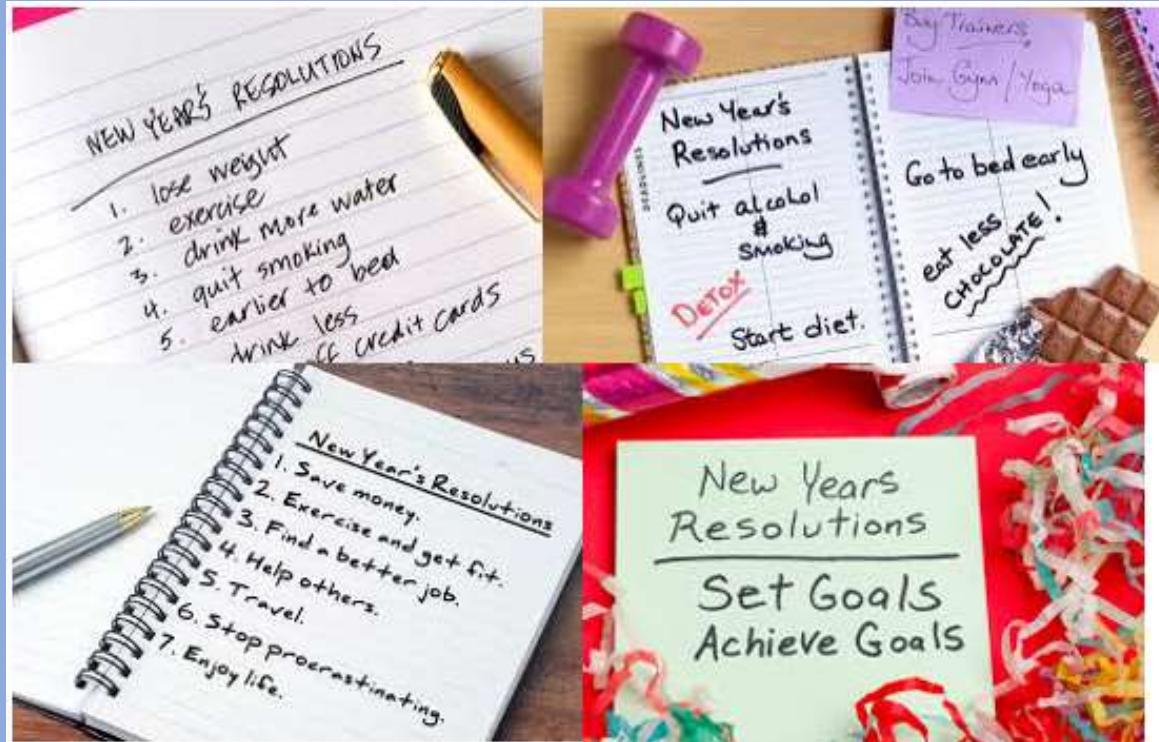 NEW YEAR'S RESOLUTIONS
1. lose weight
2. exercise
3. drink more water
4. quit smoking
5. earlier to bed
drink less
credit cards
Buy Trainers
Join Gym / Yoga
New Year's
Resolutions
Quit alcohol
&
smoking
DETOX
Start diet.
Go to bed early
eat less
CHOCOLATE!
New Year's Resolutions
1. Save money.
2. Exercise and get fit.
3. Find a better job.
4. Help others.
5. Travel.
6. Stop procrastinating.
7. Enjoy life.
New Years
Resolutions
Set Goals
Achieve Goals